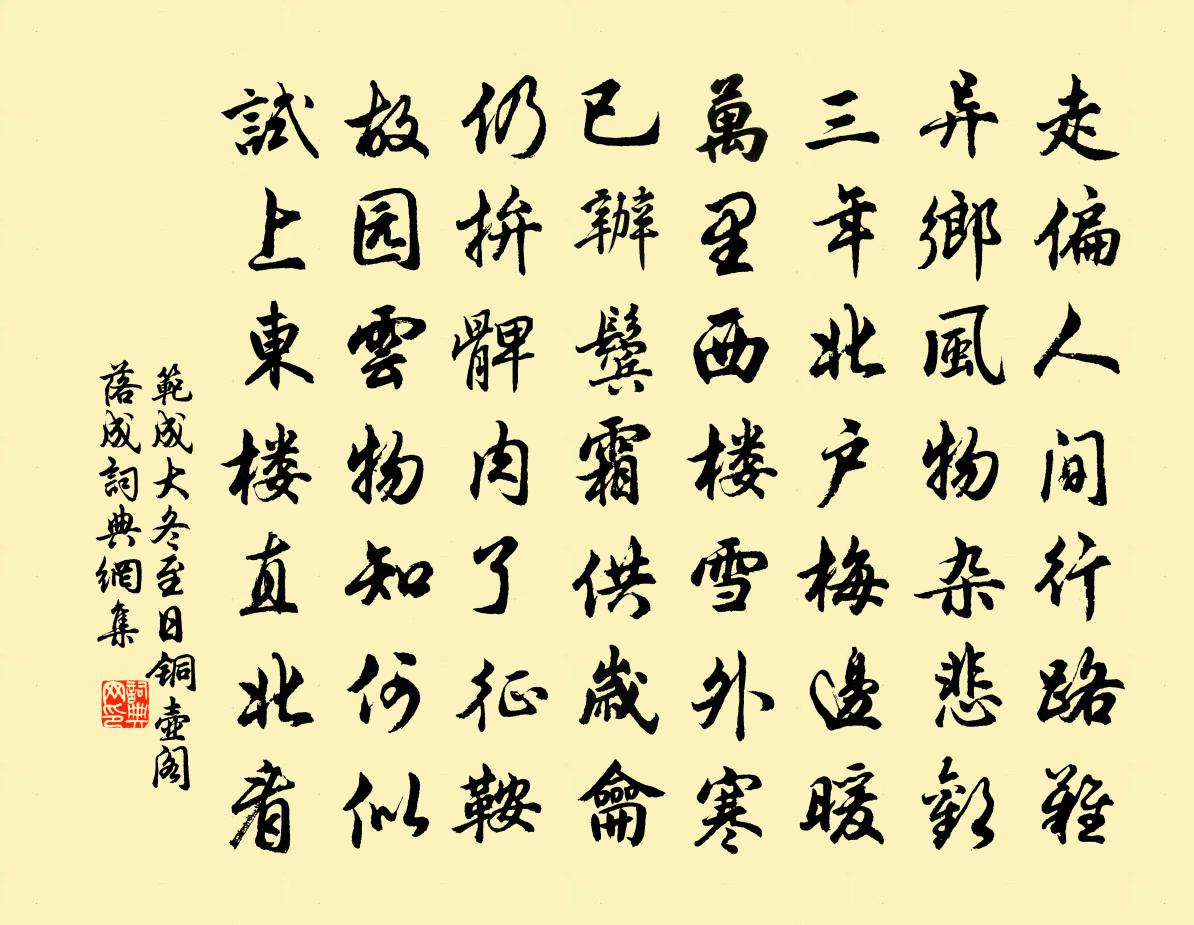 走偏人间行路難
异鄉風物杂悲歡
三年北户梅邊暖
萬里西楼雪外寒
已辦鬓霜供歲龠
仍拚髀肉了征鞍
故园雲物知何似
試上東楼直北看
範成大冬至日铜壶阁
落成詞典網集
詞典网印